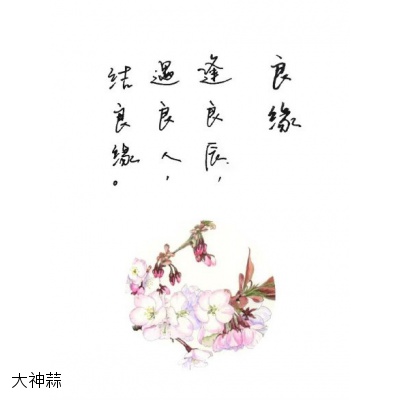 良缘
逢良辰，
遇良人，
结良缘。
大神蒜